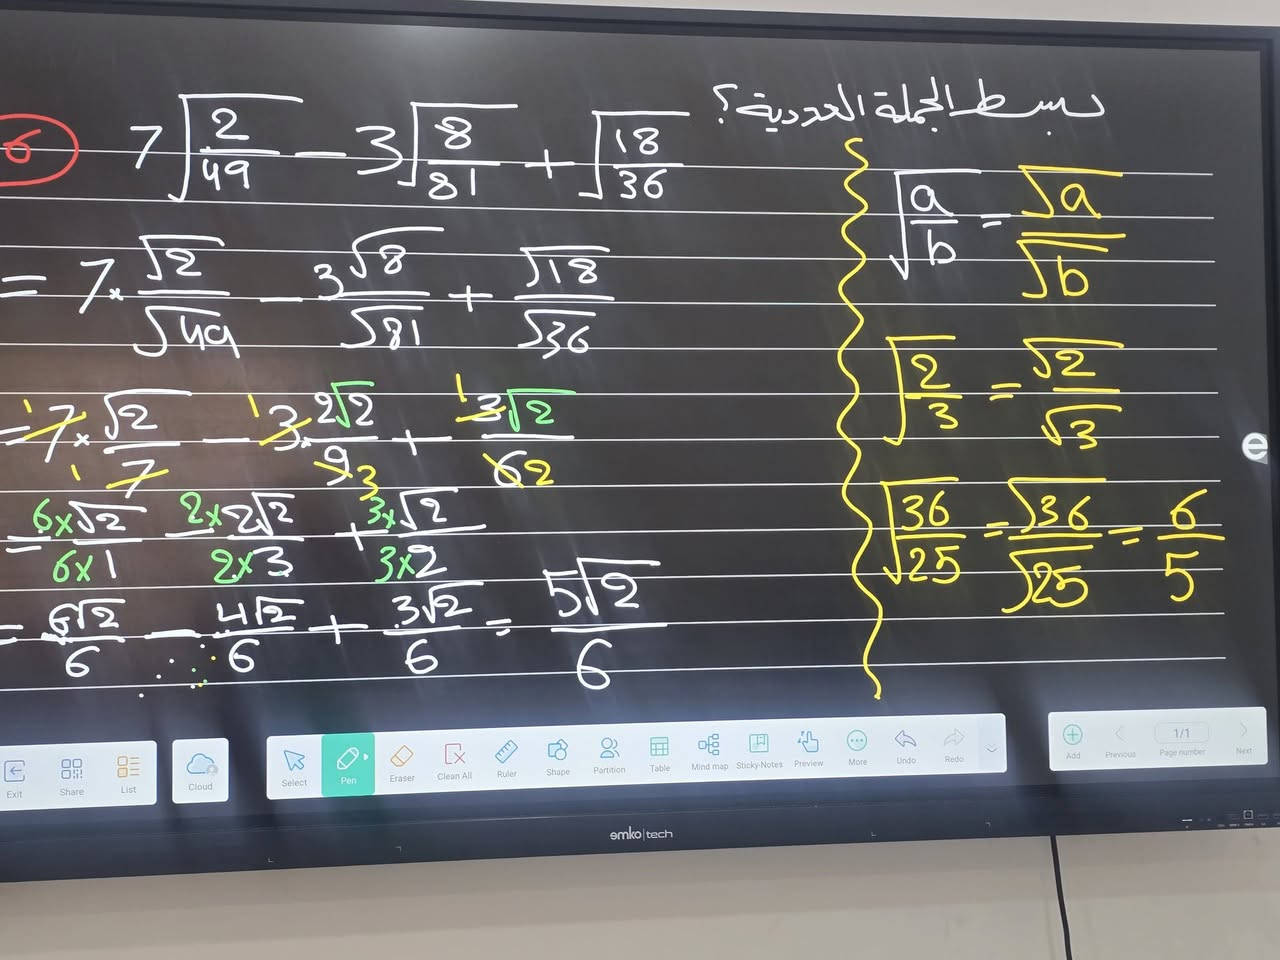 بسط الجملة العددية؟
6
7√(2/49) - 3√(8/81) + √(18/36)
= 7 × √2/√49 - 3√8/√81 + √18/√36
= 7 × √2/7 - 3 · 2√2/9 + 3√2/6
1 1 1 3 1 2
= 6×√2/6×1 - 2×2√2/2×3 + 3×√2/3×2
- 6√2/6 - 4√2/6 + 3√2/6 = 5√2/6
√(a/b) = √a/√b
√(2/3) = √2/√3
√(36/25) = √36/√25 = 6/5
e
Exit Share List Cloud Select Pen Eraser Clean All Ruler Shape Partition Table Mind map Sticky-Notes Preview More Undo Redo Add Previous 1/1 Page number Next
emko|tech